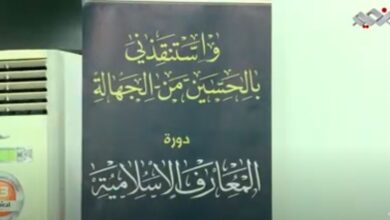 واستنقذني
بالحسين من الجهالة
دورة
المعارف الإسلامية